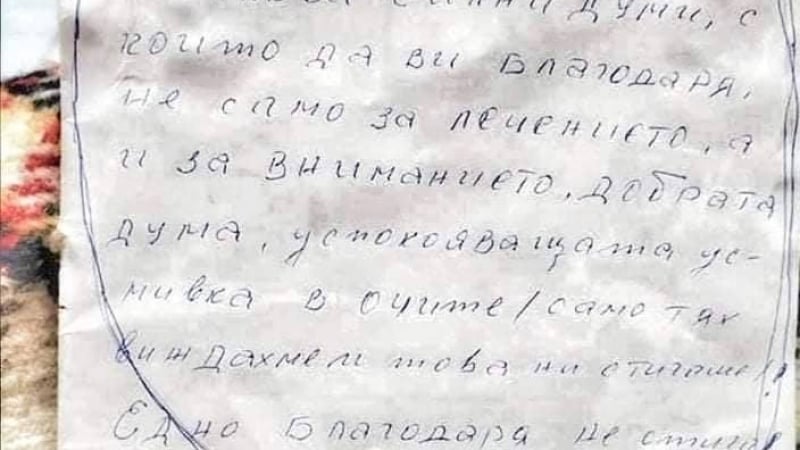 силни думи, с
които да ви благодаря,
не само за лечението, а
и за вниманието, добрата
дума, успокояващата ус-
мивка в очите/само тях
виждахмеи това ни стигаше/!
Едно благодаря не стига